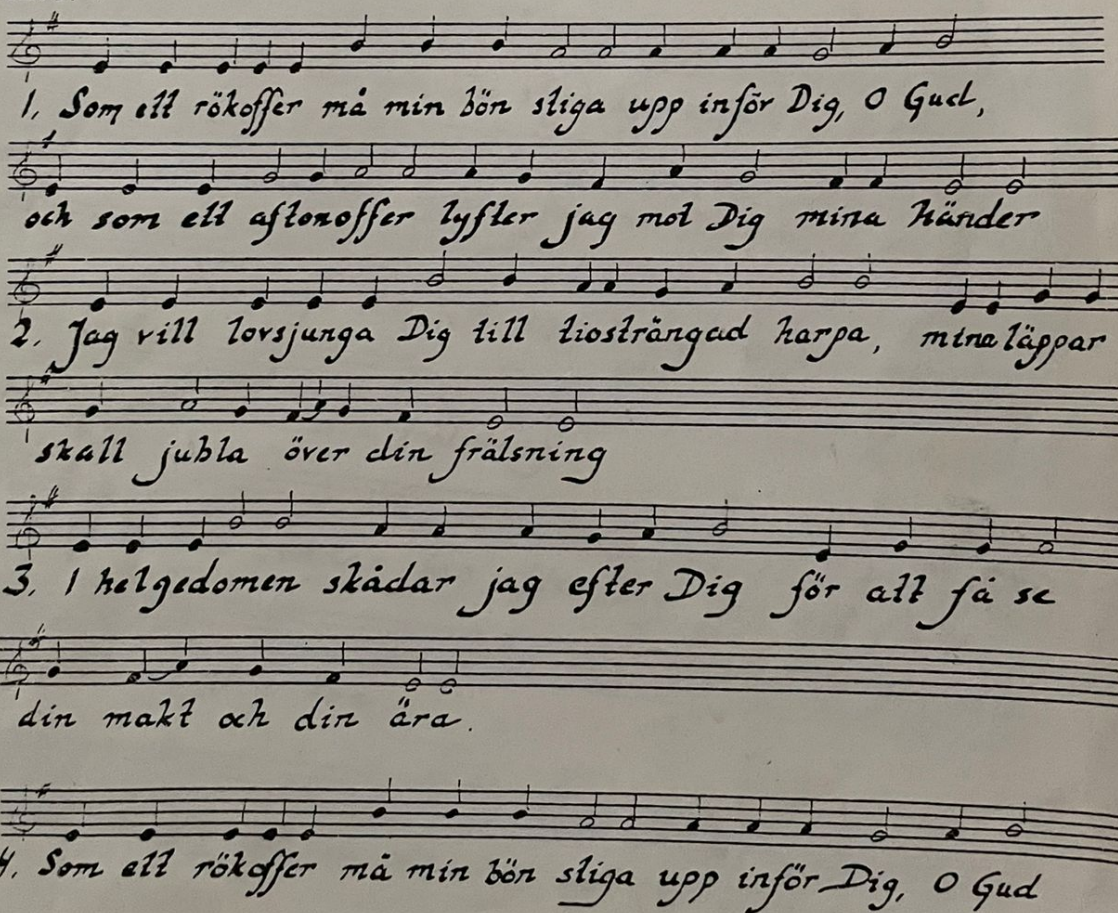 1. Som ett rökoffer må min bön stiga upp inför Dig, O Gud,
och som ett aftonoffer lyfter jag mot Dig mina händer
2. Jag vill lovsjunga Dig till tiosträngad harpa, mina läppar
skall jubla över din frälsning
3. I helgedomen skådar jag efter Dig för att få se
din makt och din ära.
4. Som ett rökoffer må min bön stiga upp inför Dig, O Gud